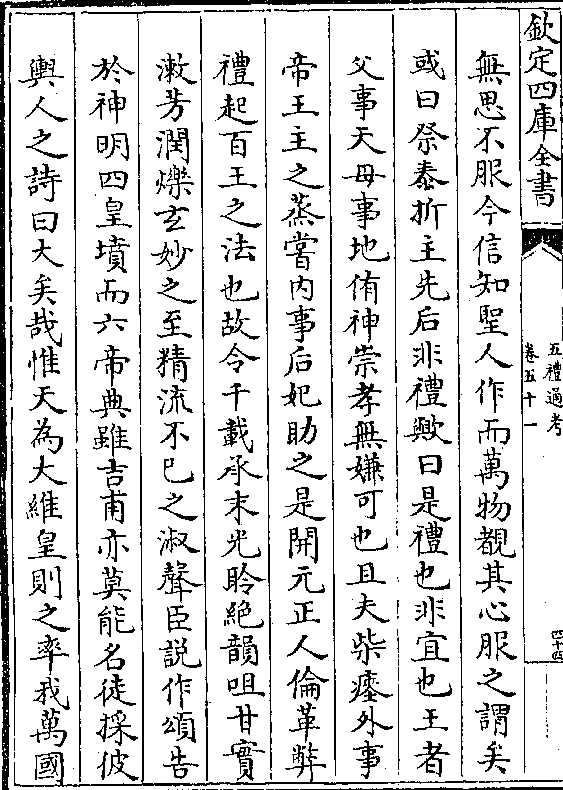 欽定四庫全書
五禮通考
卷五十一
四十四
無思不服今信知聖人作而萬物覩其心服之謂矣
或曰祭泰折主先后非禮歟曰是禮也非宜也王者
父事天母事地侑神崇孝無嫌可也且夫柴瘞外事
帝王主之蒸嘗內事后妃助之是開元正人倫革弊
禮起百王之法也故令千載承末光聆絶韻咀甘實
漱芳潤爍玄妙之至精流不已之淑聲臣說作頌告
於神明四皇墳而六帝典雖吉甫亦莫能名徒採彼
輿人之詩曰大矣哉惟天為大維皇則之率我萬國